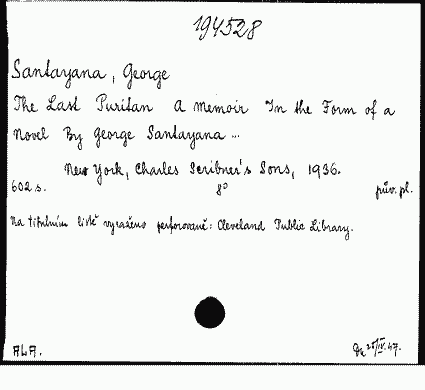 194528
Santayana, George
The Last Puritan A Memoir In the Form of a
Novel By George Santayana ...
New York, Charles Scribner's Sons, 1936.
602 s. 8° pův. pl.
Na titulním listě vyraženo perforovaně: Cleveland Public Library.
ALA.